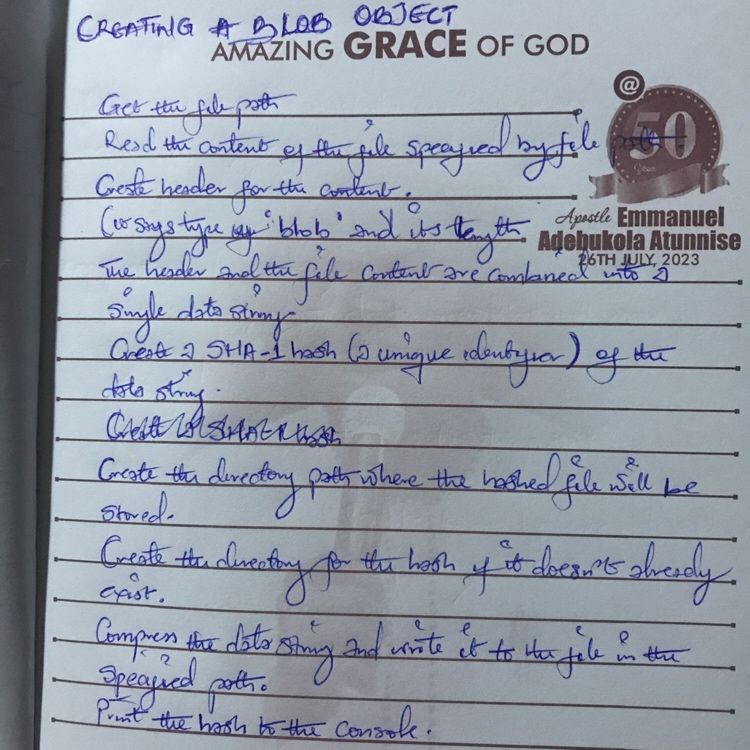 CREATING A BLOB OBJECT
AMAZING GRACE OF GOD
Get the file path
@
Read the content of the file specified by file path.
50
Years
Create header for the content.
(it says type of 'blob' and its length
Apostle Emmanuel
Adebukola Atunnise
26TH JULY, 2023
The header and the file content are combined into a
single data string
Create a SHA-1 hash (a unique identifier) of the
data string.
Create the directory path where the hashed file will be
stored.
Create the directory for the hash if it doesn't already
exist.
Compress the data string and write it to the file in the
specified path.
Print the hash to the console.